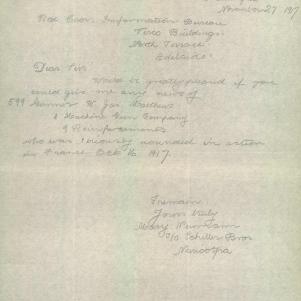 November 27 1917
Red Cross Information Bureau
Tirco Buildings
North Terrace
Adelaide
Dear Sir
Would be greatly pleased if you
could give me any news of
599 Gunner W. Jas. Matthews
Machine Gun Company
9 Reinforcements
who was seriously wounded in action
in France Oct 16 1917.
I remain
Yours truly
Mary
c/o Schiller Bros